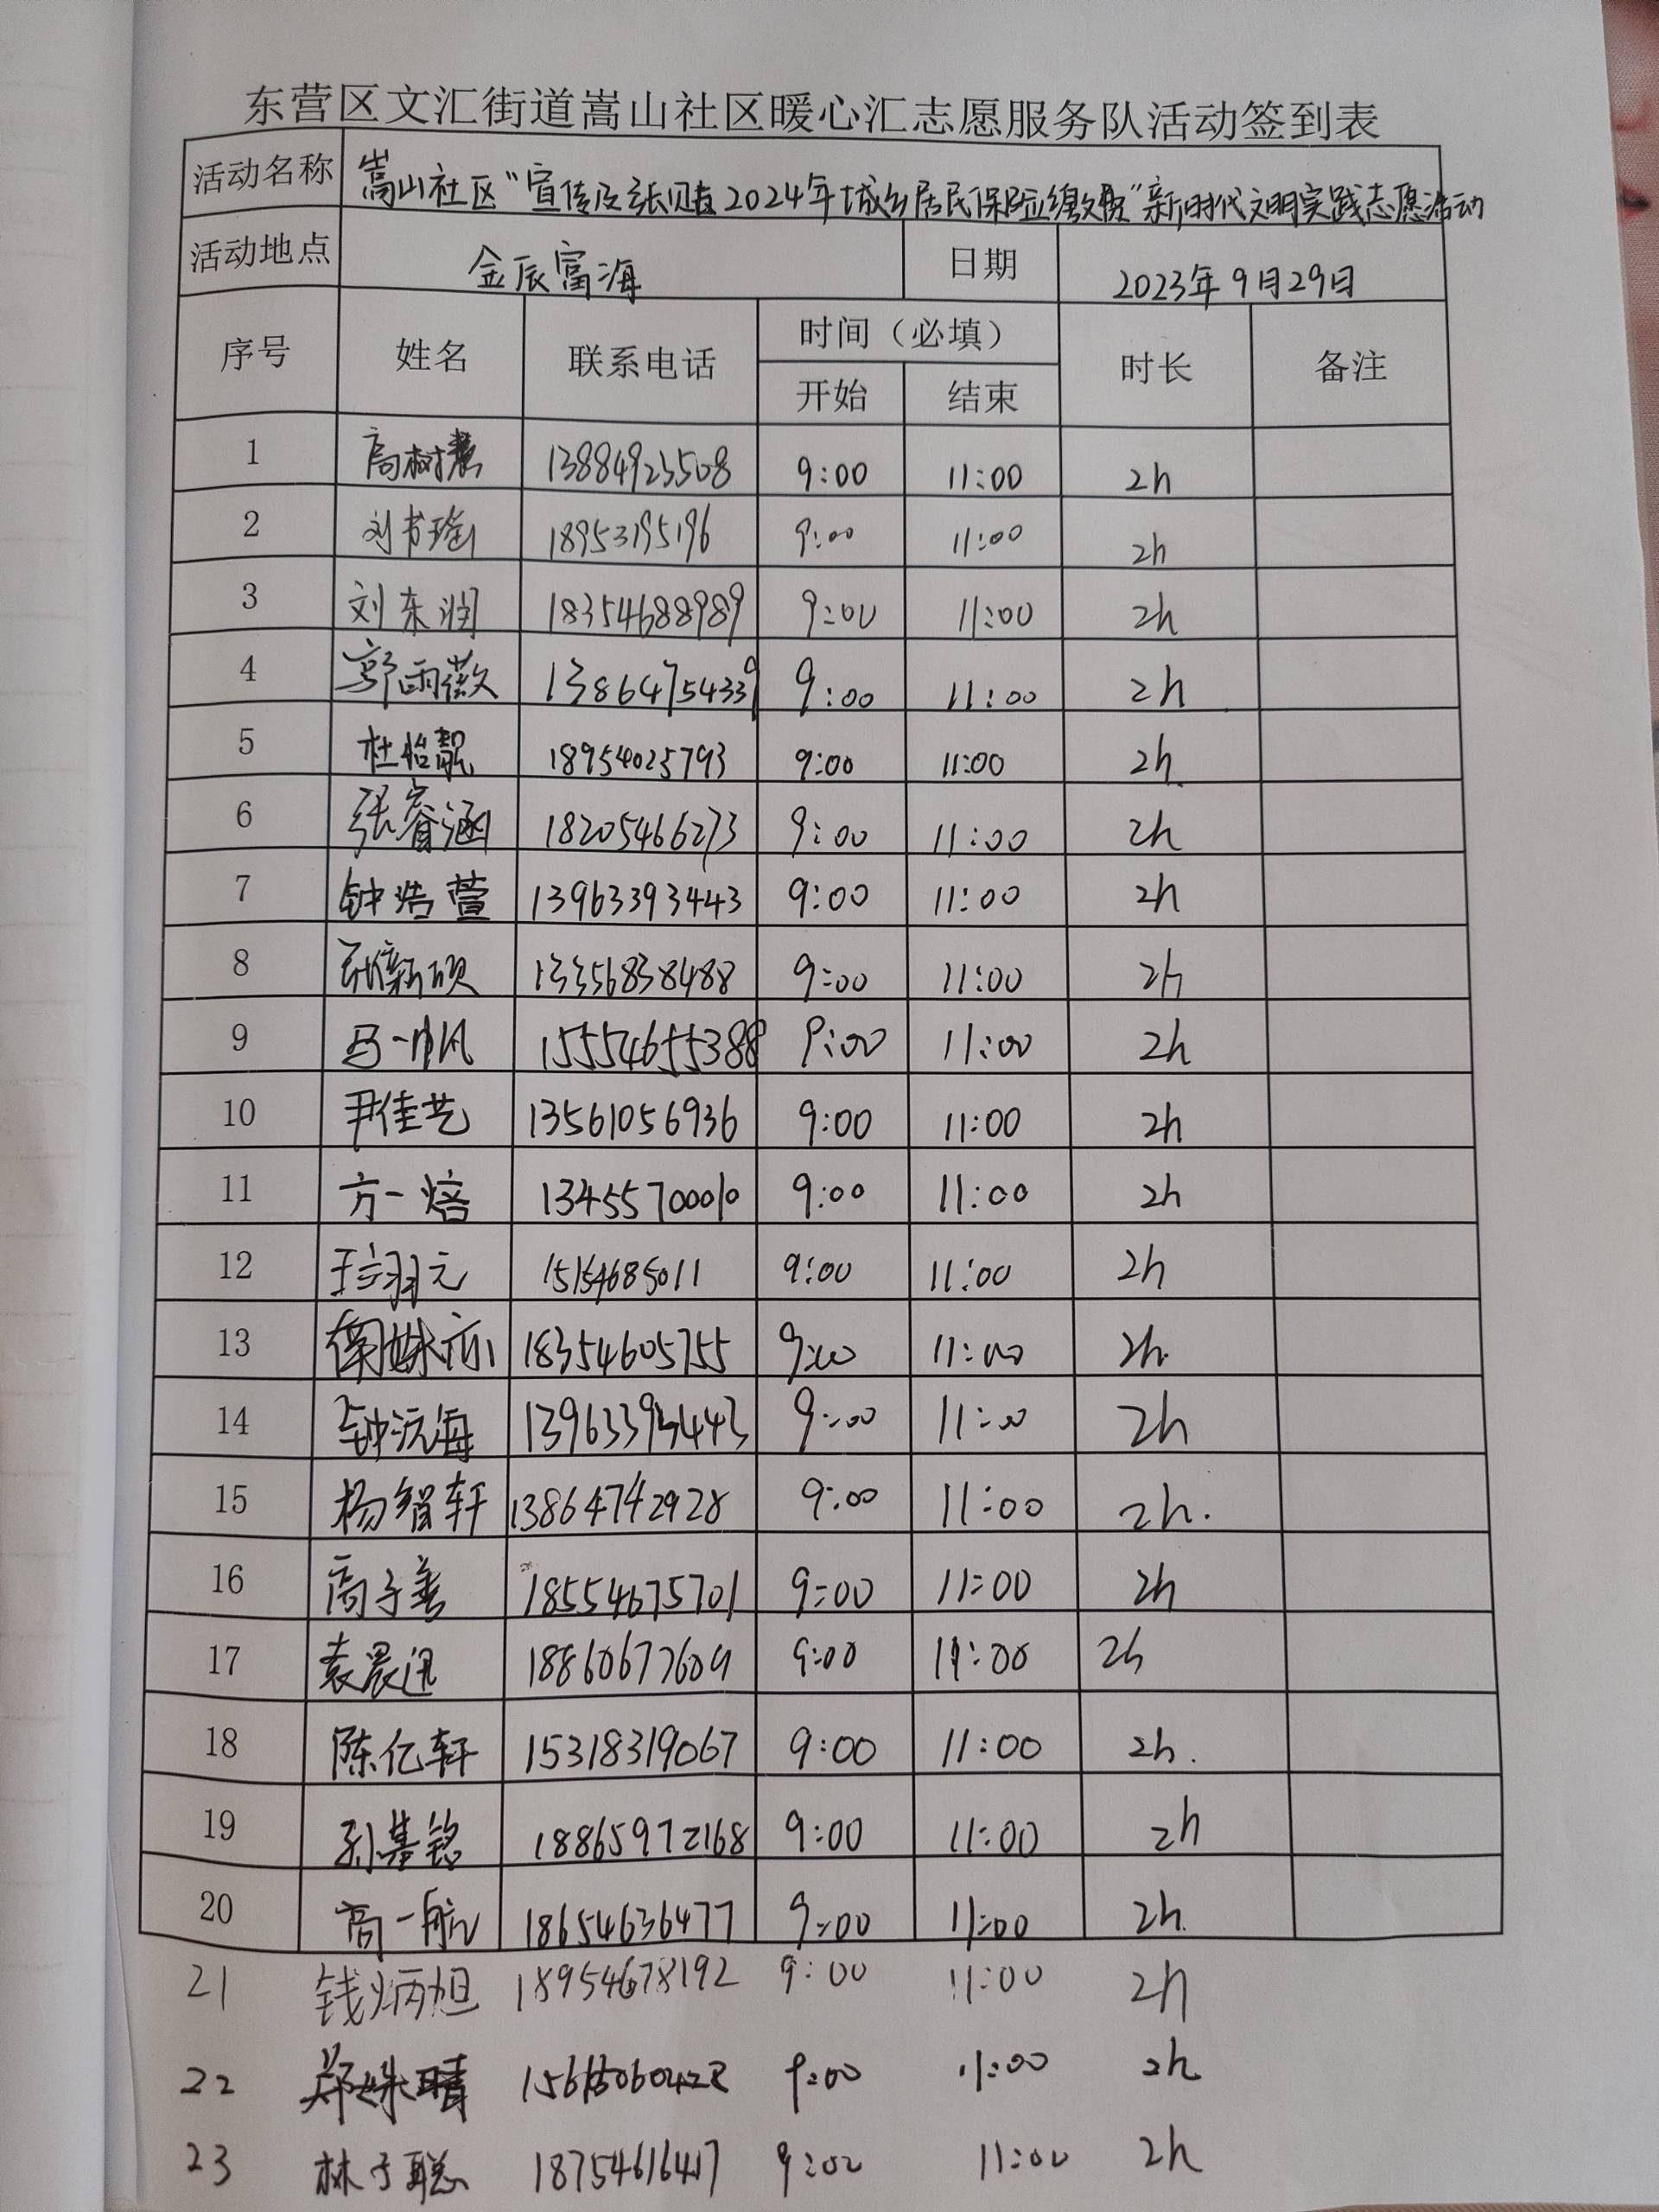 东营区文汇街道嵩山社区暖心汇志愿服务队活动签到表
活动名称 嵩山社区“宣传及张贴2024年城乡居民保险缴费”新时代文明实践志愿活动
活动地点 金辰富海 日期 2023年9月29日
序号 姓名 联系电话 时间（必填） 时长 备注
开始 结束
1 高树慧 13884923508 9:00 11:00 2h
2 刘书瑶 18953195196 9:00 11:00 2h
3 刘东润 18354688989 9:00 11:00 2h
4 郭雨薇 13864754339 9:00 11:00 2h
5 杜怡靓 18954025793 9:00 11:00 2h
6 张睿涵 18205466273 9:00 11:00 2h
7 钟浩萱 13963393443 9:00 11:00 2h
8 13356838488 9:00 11:00 2h
9 马一帆 15554655388 9:00 11:00 2h
10 尹佳艺 13561056936 9:00 11:00 2h
11 方一焙 13455700010 9:00 11:00 2h
12 9:00 11:00 2h
13 18354605755 9:00 11:00 2h.
14 钟沅海 13963393443 9:00 11:00 2h
15 杨智轩 13864742928 9:00 11:00 2h.
16 高子善 18554675701 9:00 11:00 2h
17 袁晨迅 18860677609 9:00 11:00 2h
18 陈亿轩 15318319067 9:00 11:00 2h.
19 孙基铭 18865972168 9:00 11:00 2h
20 高一航 18654636477 9:00 11:00 2h.
21 钱炳旭 18954678192 9:00 11:00 2h
22 郑姝晴 9:00 11:00 2h
23 林子聪 18754616417 9:00 11:00 2h